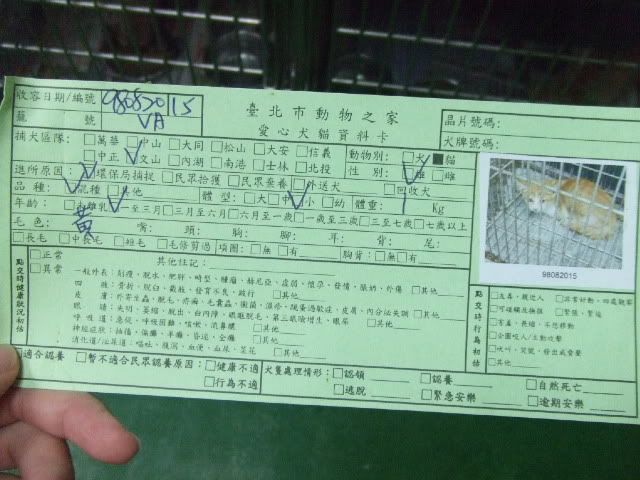 臺北市動物之家
愛心犬貓資料卡
收容日期/編號 980820 15
籠 號 VA
晶片號碼:
犬牌號碼:
捕犬區隊: □萬華 □中山 □大同 □松山 □大安 □信義
□中正 □文山 □內湖 □南港 □士林 □北投
動物別: □犬 ■貓
性 別: □雄 □雌
進所原因: □環保局捕捉 □民眾拾獲 □民眾棄養 □外送犬 □回收犬
品 種: □混種 □其他 體 型: □大 □中 □小 □幼 體重: Kg
年齡: □未離乳 □一至三月 □三月至六月 □六月至一歲 □一歲至三歲 □三至七歲 □七歲以上
毛色: 黃 嘴: 頭: 胸: 腳: 耳: 背: 尾:
□長毛 □中長毛 □短毛 □毛修剪過 項圈: □無 □有 胸背: □無 □有
98082015
點交時健康狀況初估
□正常
□異常
其他註記:
一般外傷: 創瘦、脫水、肥胖、畸型、腫瘤、赫尼亞、虛弱、懷孕、發情、脹奶、外傷 □其他
四 肢: 骨折、脫臼、截肢、發育不良、跛行 □其他
皮 膚: 外寄生蟲、脫毛、疥癬、毛囊蟲、黴菌、濕疹、跳蚤過敏症、皮屑、內分泌失調 □其他
眼 睛: 失明、萎縮、脫出、白內障、眼瞼脫毛、第三眼瞼增生、眼屎 □其他
呼吸道: 急促、呼吸困難、咳嗽、流鼻膿 □其他
神經症狀: 抽搐、偏癱、半癱、昏迷、全癱 □其他
消化道/泌尿道: 嘔吐、腹瀉、血便、血尿、菜花 □其他
點交時行為初估
□友善、親近人 □非常好動、四處觀察
□可碰觸及撫摸 □緊張、緊繃
□害羞、畏縮、不想移動
□企圖咬人/主動攻擊
□吠叫、哭號、發出威脅聲
□其他
□適合認養 □暫不適合民眾認養原因: □健康不適
□行為不適
犬隻處理情形: □認領 □認養 □自然死亡
□逃脫 □緊急安樂 □逾期安樂